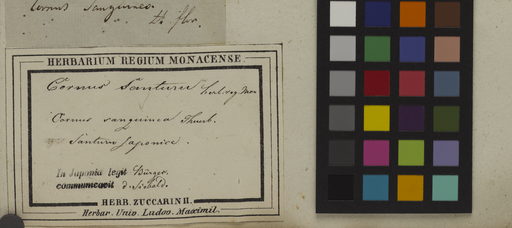 Cornus sanguinea.
fl. flor.
HERBARIUM REGIUM MONACENSE
Cornus Santuru herb. reg. Mon
Cornus sanguinea Thunb.
Santuru Japonice.
In Japonia legit Bürger,
communicavit d. Siebold.
HERB. ZUCCARINII.
Herbar. Univ. Ludov. Maximil.